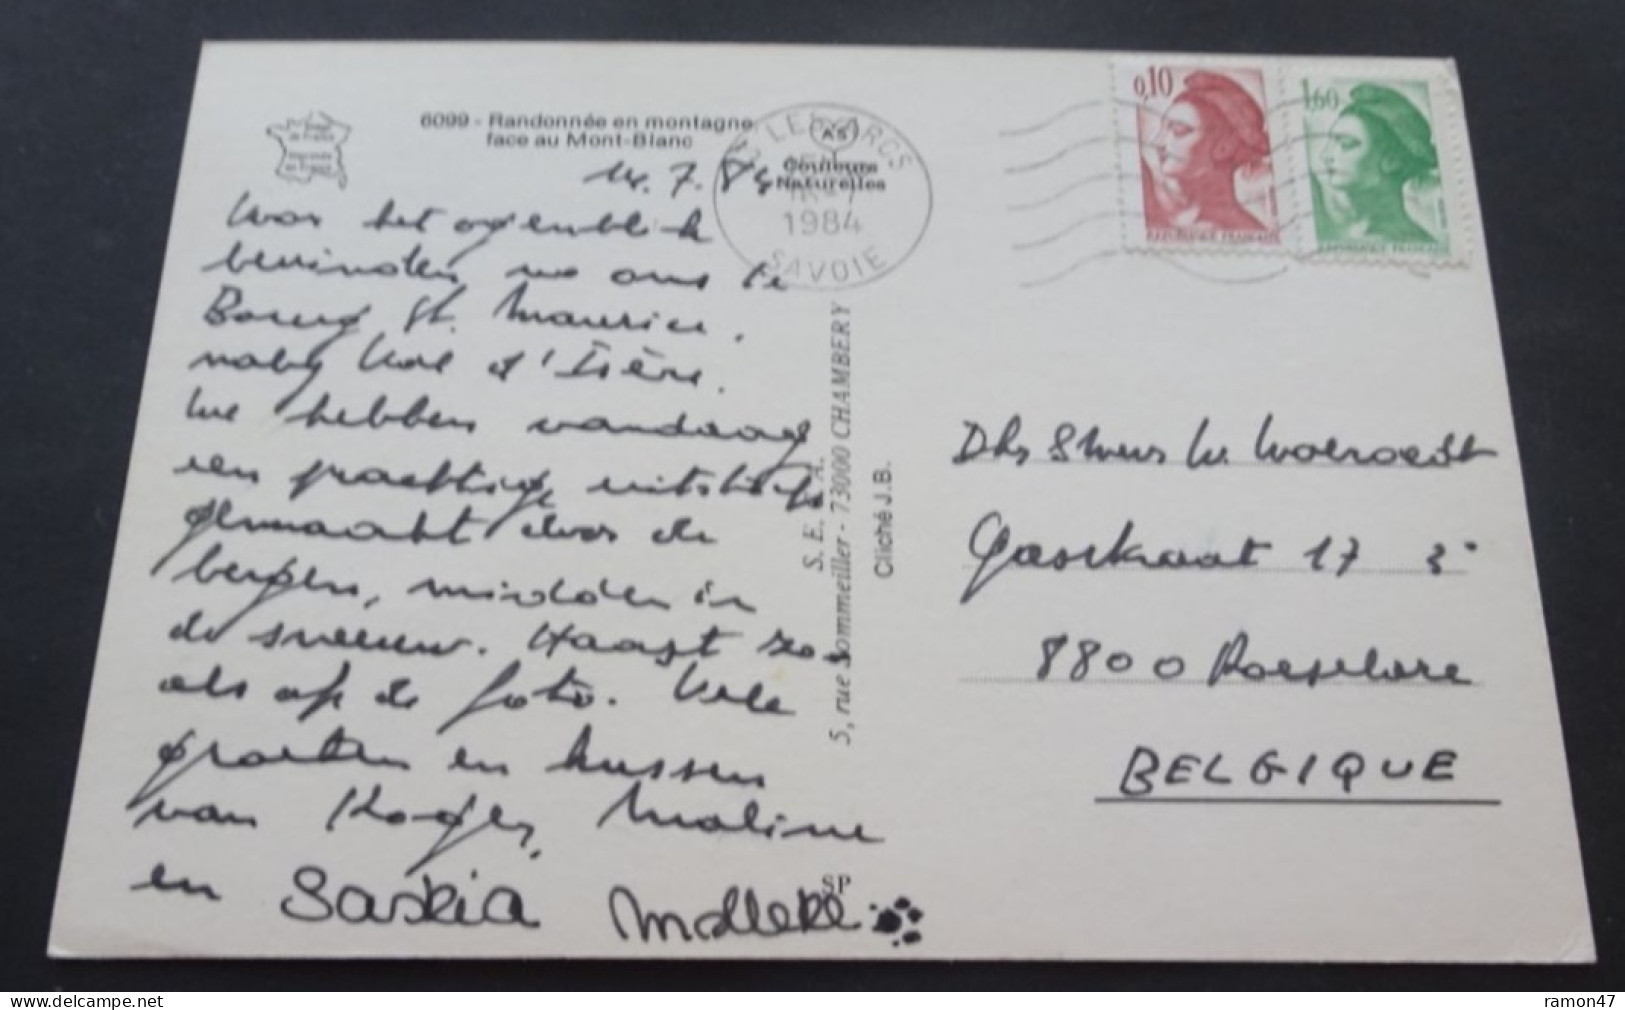 6099 - Randonnée en montagne
face au Mont-Blanc
14.7.84
Voor het ogenblik
bevinden we ons te
Bourg St. Maurice,
naby Val d'Isère.
We hebben vandaag
een prachtige uitstap
gemaakt door de
bergen, midden in
de sneeuw. Haast zo
als op de foto. Vele
groeten en kussen
van Roger, Maline
en Saskia Molleke
AS
Couleurs
Naturelles
LES ARCS
1984
SAVOIE
S. E. A.
5, rue Sommeiller - 73000 CHAMBERY
Cliché J.B.
SP
0,10
REPUBLIQUE FRANÇAISE
1,60
REPUBLIQUE FRANÇAISE
Gasstraat 17
8800 Roeselare
BELGIQUE
ramon47